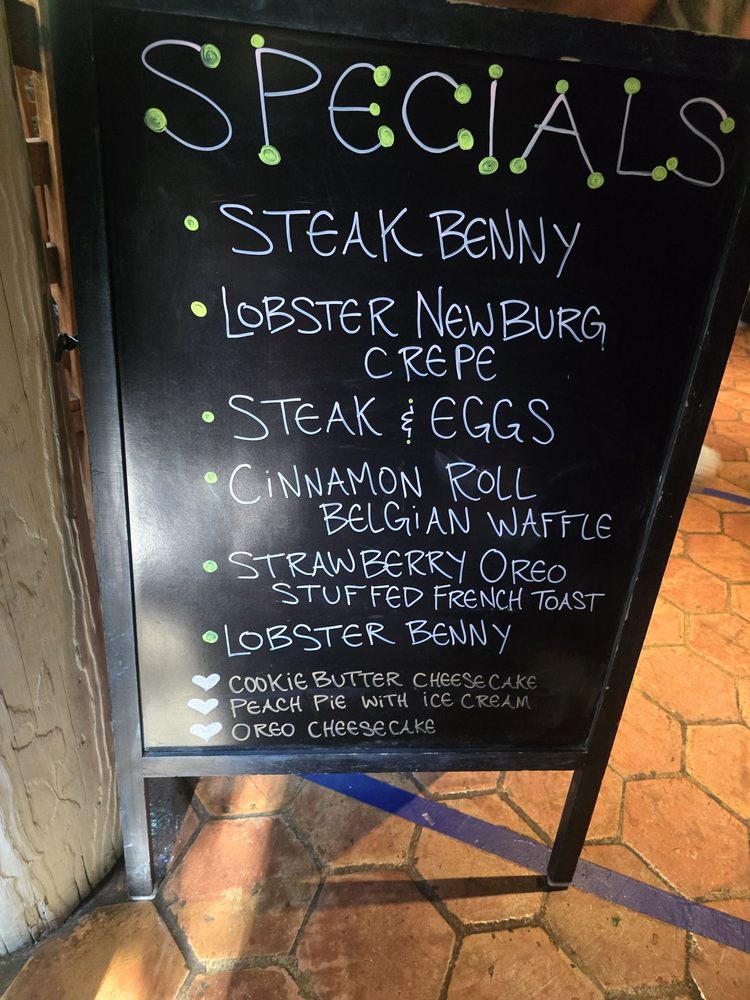 SPECIALS
• STEAK BENNY
• LOBSTER NEWBURG
CREPE
• STEAK & EGGS
• CINNAMON ROLL
BELGIAN WAFFLE
• STRAWBERRY OREO
STUFFED FRENCH TOAST
• LOBSTER BENNY
♥ COOKIE BUTTER CHEESECAKE
♥ PEACH PIE WITH ICE CREAM
♥ OREO CHEESECAKE